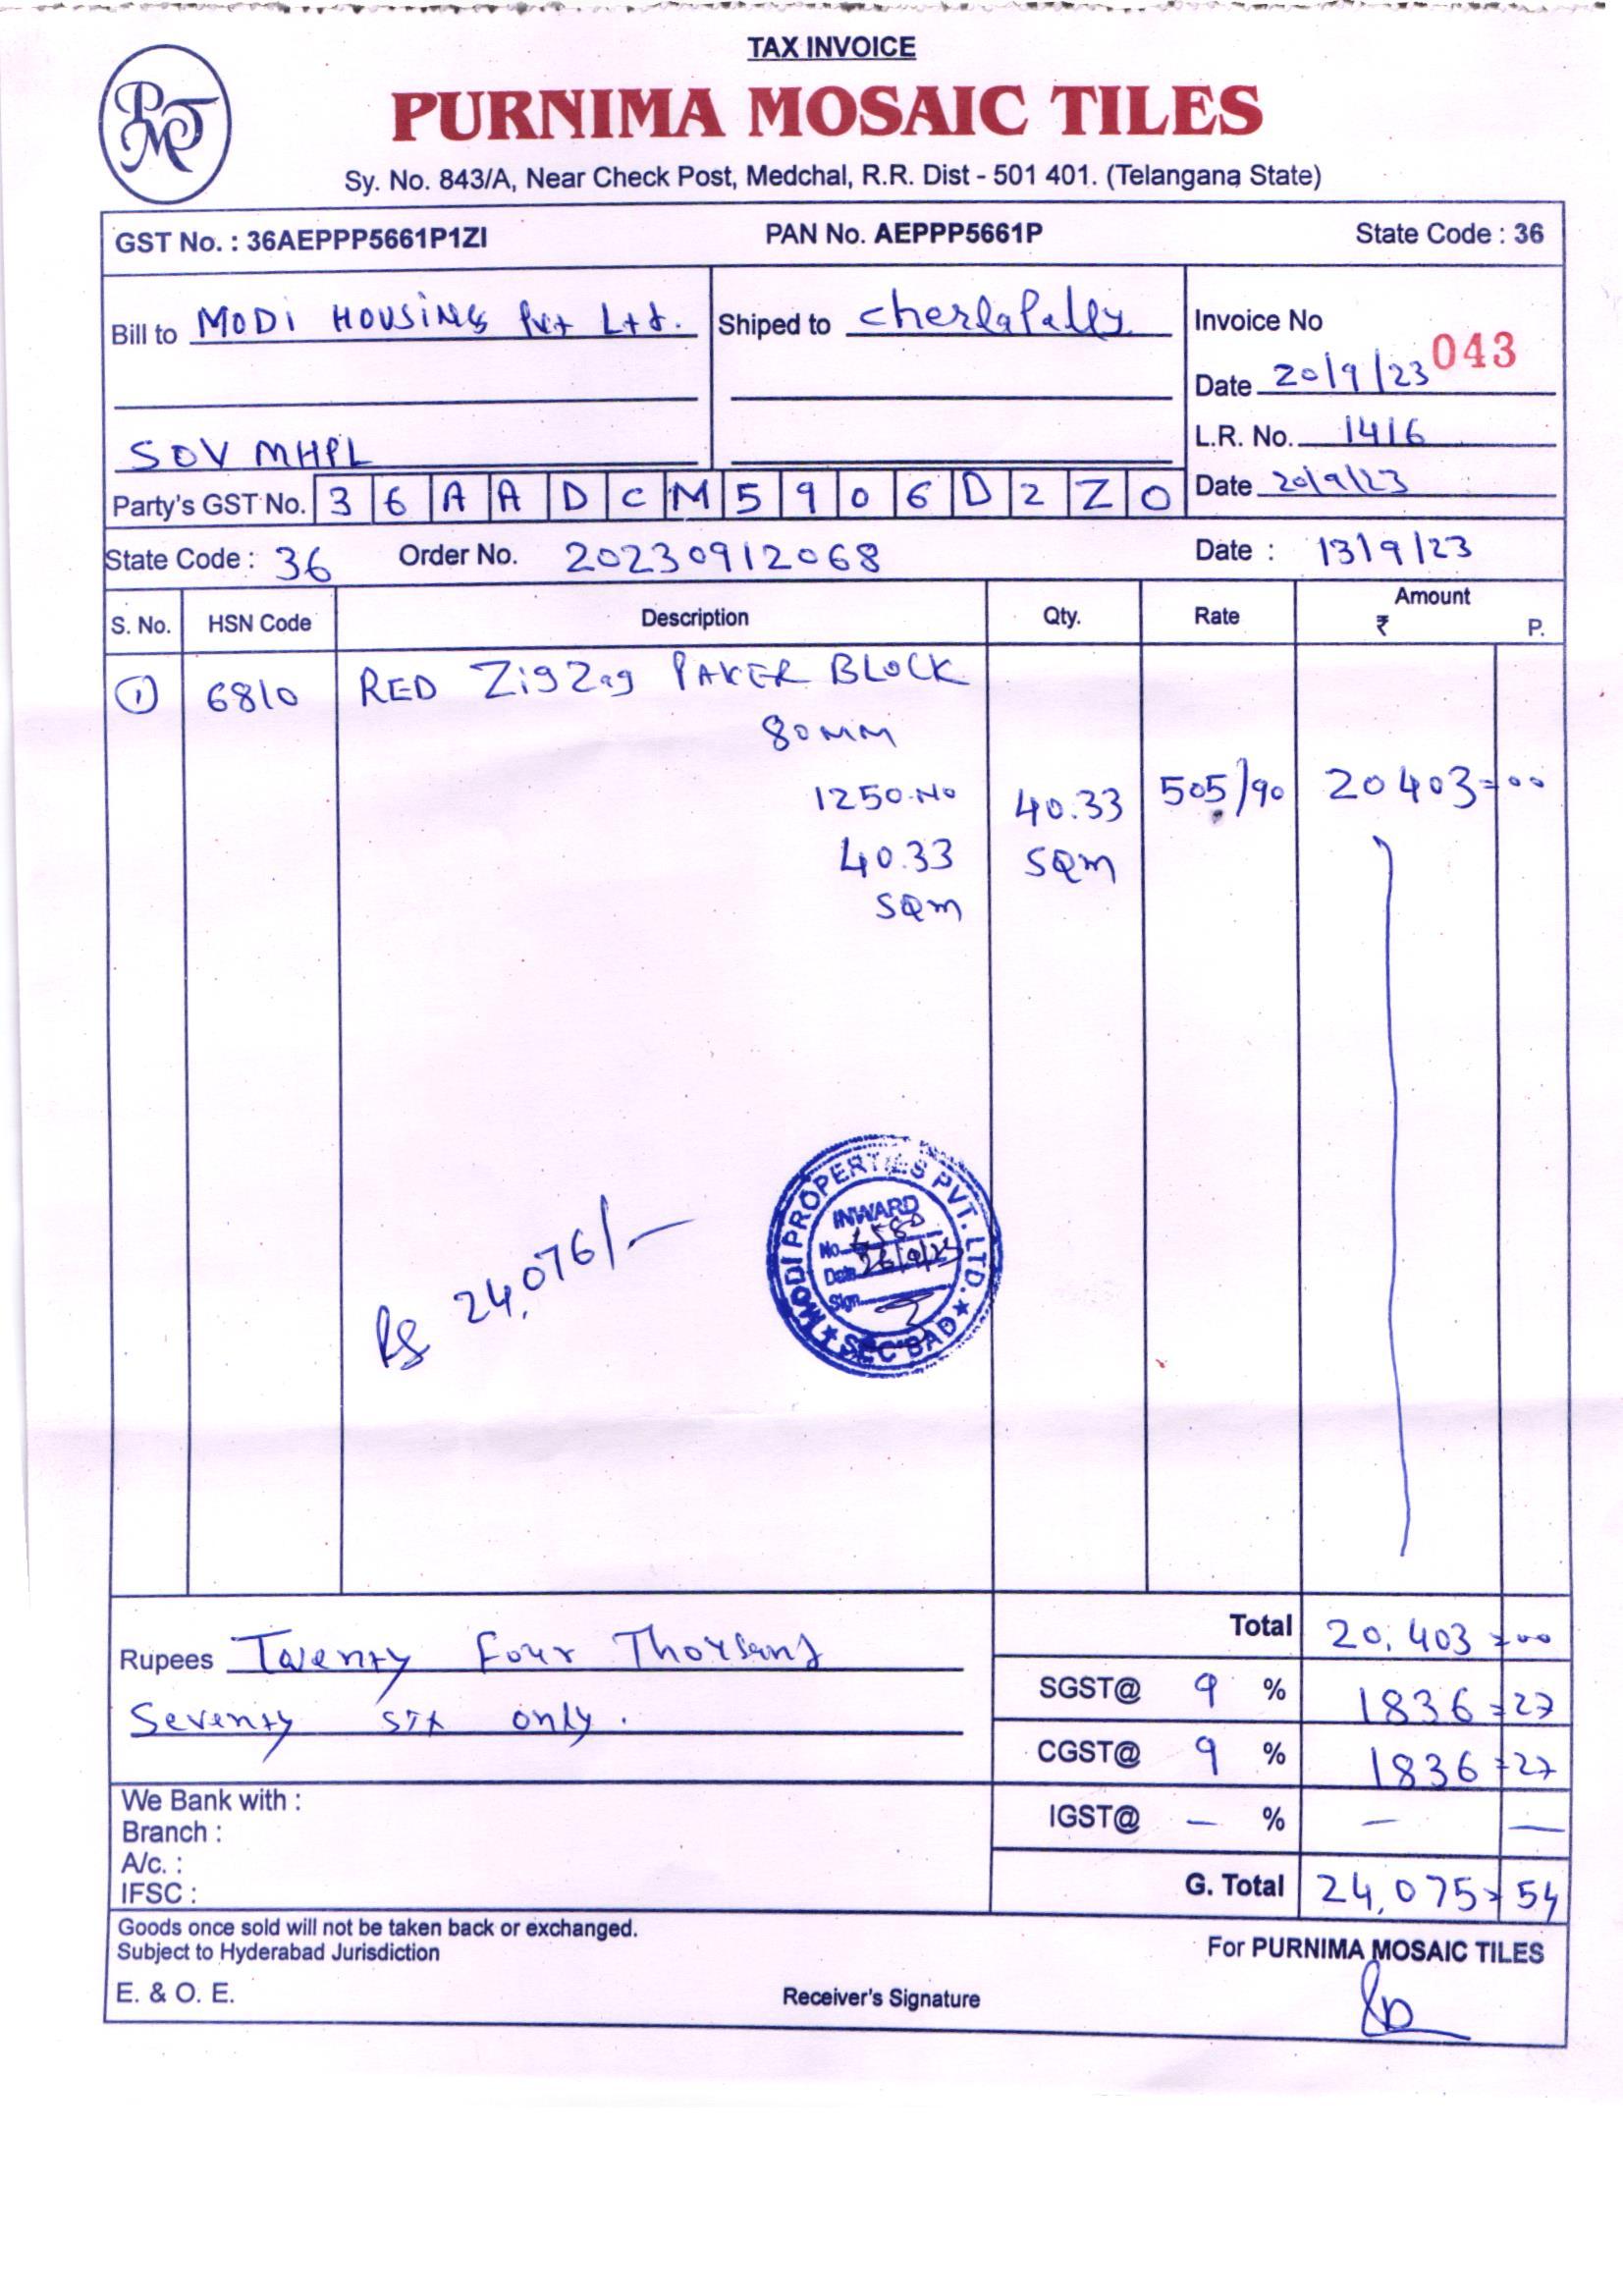 TAX INVOICE
PMT
PURNIMA MOSAIC TILES
Sy. No. 843/A, Near Check Post, Medchal, R.R. Dist - 501 401. (Telangana State)
GST No. : 36AEPPP5661P1ZI PAN No. AEPPP5661P State Code : 36
Bill to MODI HOUSING Pvt Ltd. Shiped to cherlapally Invoice No 043
Date 20/9/23
SOV MHPL L.R. No. 1416
Party's GST No. 36AADCM5906D2ZO Date 20/9/23
State Code : 36 Order No. 20230912068 Date : 13/9/23
S. No. HSN Code Description Qty. Rate Amount
₹ P.
① 6810 RED ZigZag PAVER BLOCK
80MM
1250.No 40.33 505/90 20403=00
40.33 SQm
SQm
MODI PROPERTIES PVT. LTD. ★ SEC'BAD ★
INWARD
No.
Date 26/9/23
Sign
Rs 24,076/-
Total 20,403=00
Rupees Twenty Four Thousand
SGST@ 9 % 1836=27
Seventy six only.
CGST@ 9 % 1836=27
We Bank with :
IGST@ — % — —
Branch :
A/c. :
G. Total 24,075=54
IFSC :
Goods once sold will not be taken back or exchanged.
Subject to Hyderabad Jurisdiction For PURNIMA MOSAIC TILES
E. & O. E. Receiver's Signature